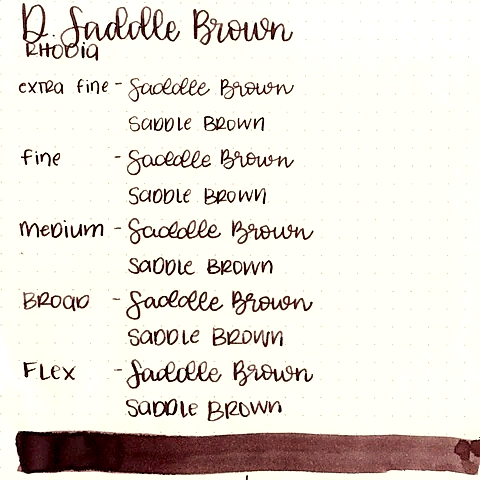 D. Saddle Brown
RHODIA
extra fine - Saddle Brown
SADDLE BROWN
fine - Saddle Brown
SADDLE BROWN
medium - Saddle Brown
SADDLE BROWN
BROAD - Saddle Brown
SADDLE BROWN
FLEX - Saddle Brown
SADDLE BROWN